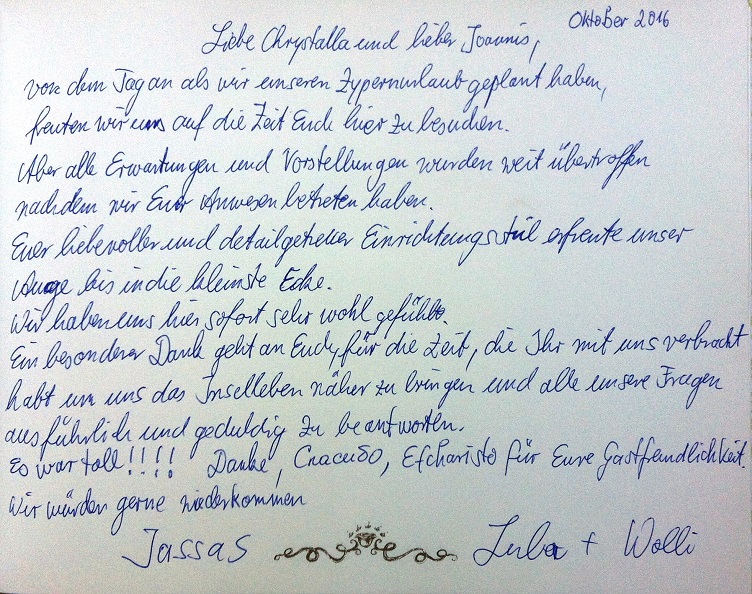 Oktober 2016
Liebe Chrystalla und lieber Joannis,
von dem Tag an als wir unseren Zypernurlaub geplant haben,
freuten wir uns auf die Zeit Euch hier zu besuchen.
Aber alle Erwartungen und Vorstellungen wurden weit übertroffen
nachdem wir Euer Anwesen betreten haben.
Euer liebevoller und detailgetreuer Einrichtungsstil erfreute unser
Auge bis in die kleinste Ecke.
Wir haben uns hier sofort sehr wohl gefühlt.
Ein besonderer Dank geht an Euch, für die Zeit, die Ihr mit uns verbracht
habt um uns das Inselleben näher zu bringen und alle unsere Fragen
ausführlich und geduldig zu beantworten.
Es war toll!!!! Danke, Спасибо, Efcharisto für Eure Gastfreundlichkeit.
Wir würden gerne wiederkommen
Jassas Luba + Wolli